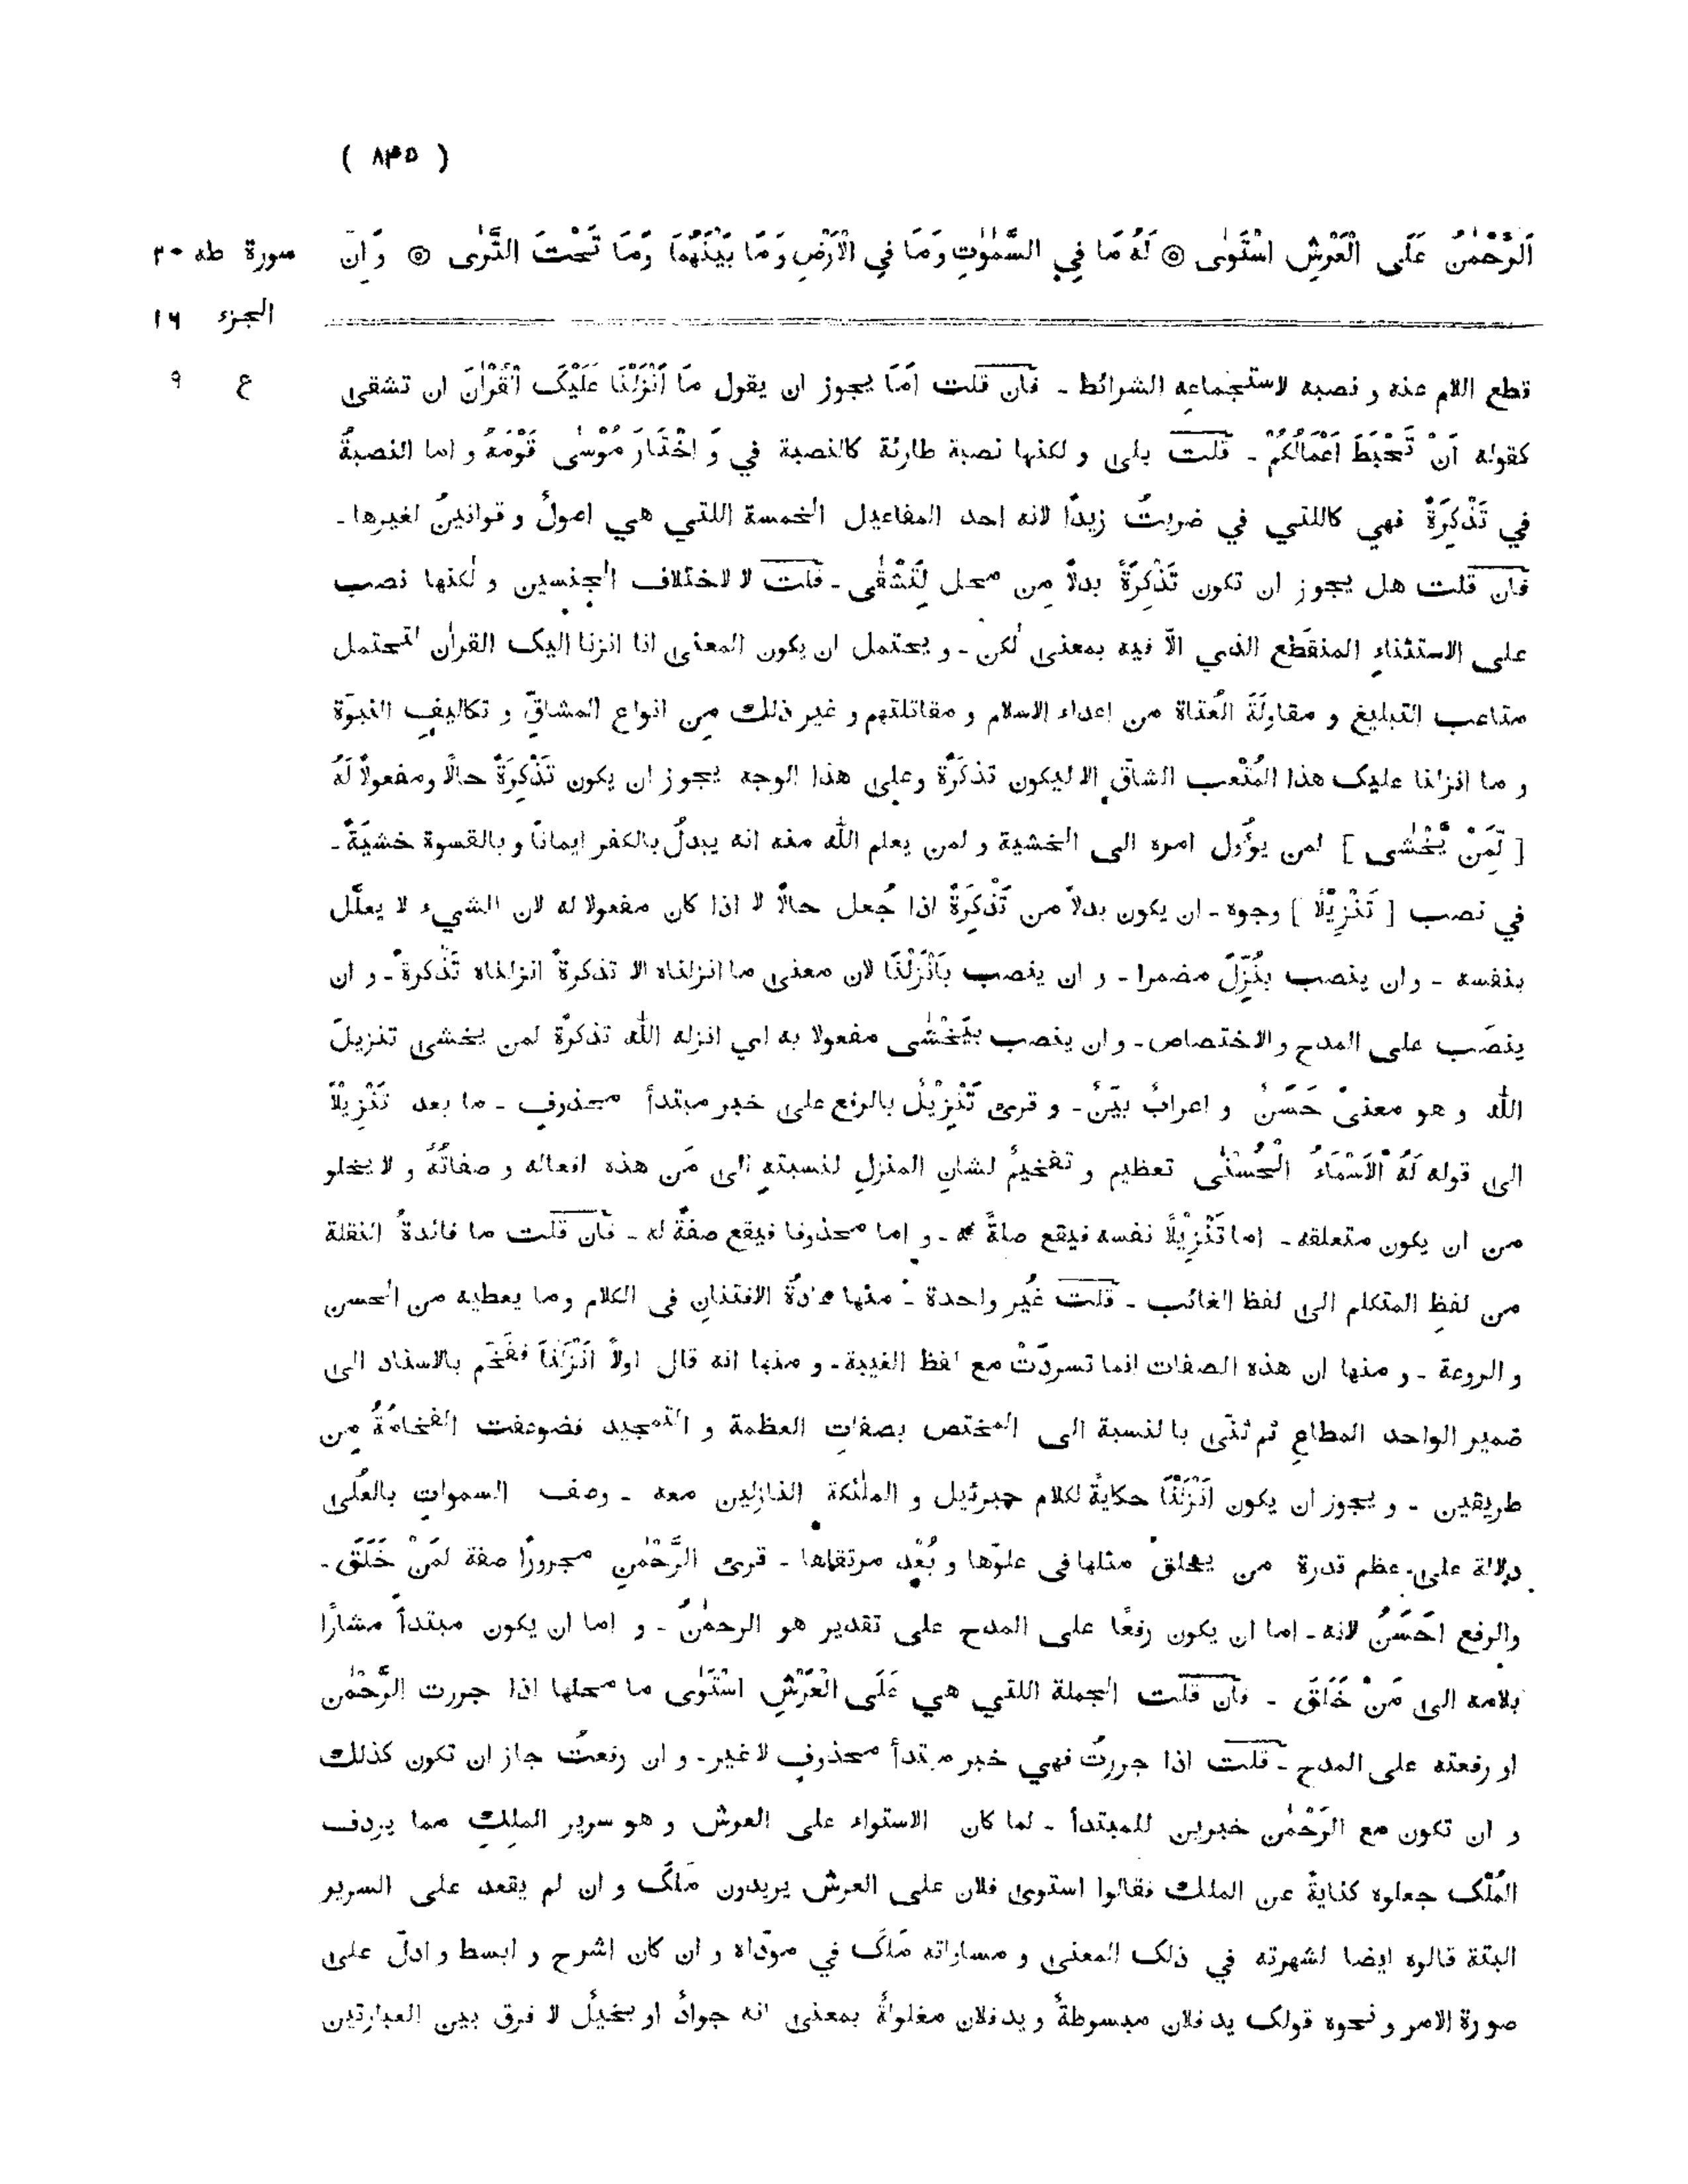 ( ٨٣٥ )
اَلرَّحْمٰنُ عَلَى الْعَرْشِ اسْتَوٰى ۞ لَهُ مَا فِي السَّمٰوٰتِ وَمَا فِي الْاَرْضِ وَمَا بَيْنَهُمَا وَمَا تَحْتَ الثَّرٰى ۞ وَاِنْ
سورة طه ٢٠
الجزء ١٦
ع ٩
قطع اللام عنه و نصبه لاستجماعه الشرائط ـ فان قلت اَمَا يجوز ان يقول مَا اَنْزَلْنَا عَلَيْكَ الْقُرْاٰنَ ان تشقى
كقوله اَنْ تَحْبَطَ اَعْمَالُكُمْ ـ قلت بلى و لكنها نصبة طارئة كالنصبة في وَ اخْتَارَ مُوْسٰى قَوْمَهُ و اما النصبةُ
في تَذْكِرَةً فهي كاللتي في ضربتُ زيدًا لانه احد المفاعيل الخمسة اللتي هي اصولٌ و قوانينُ لغيرها ـ
فان قلت هل يجوز ان تكون تَذْكِرَةً بدلًا مِن محل لِتَشْقٰى ـ قلت لا لاختلاف الجنسين و لكنها نصب
على الاستثناءِ المنقطع الذي الّا فيه بمعنى لكن ـ و يحتمل ان يكون المعنى انا انزلنا اليک القرآن لتحتمل
متاعب التبليغ و مقاولةَ العُتاة من اعداء الاسلام و مقاتلتهم و غير ذلك مِن انواع المشاقّ و تكاليفِ النبوّة
و ما انزلنا عليک هذا المُتْعب الشاقّ الا ليكون تذكرةً وعلى هذا الوجه يجوز ان يكون تَذْكِرَةً حالًا ومفعولًا لَهُ
[ لِّمَنْ يَّخْشٰى ] لمن يؤُول امره الى الخشية و لمن يعلم اللّٰه منه انه يبدلُ بالكفر ايمانًا و بالقسوة خشيةً ـ
في نصب [ تَنْزِيْلًا ] وجوه ـ ان يكون بدلًا من تَذْكِرَةً اذا جُعل حالًا لا اذا كان مفعولا له لان الشيء لا يعلَّل
بنفسه ـ و ان ينصب بنُزّلَ مضمرا ـ و ان ينصب بَاَنْزَلْنَا لان معنى ما انزلناه الا تذكرةً انزلناه تَذكرةً ـ و ان
ينصَب على المدح و الاختصاص ـ و ان ينصب بيَخْشٰى مفعولا به اي انزله اللّٰه تذكرةً لمن يخشى تنزيلَ
اللّٰه و هو معنىً حَسَنٌ و اعرابٌ بيّنٌ ـ و قرئ تَنْزِيْلٌ بالرفع على خبر مبتدأ محذوف ـ ما بعد تَنْزِيْلًا
الى قوله لَهُ الْاَسْمَاءُ الْحُسْنٰى تعظيم و تفخيمٌ لشانِ المنزل لنسبتهِ الى مَن هذه افعاله و صفاتُهُ و لا يخلو
من ان يكون متعلقه ـ اما تَنْزِيْلًا نفسه فيقع صلةً له ـ و اما محذوفا فيقع صفةً له ـ فان قلت ما فائدةُ النقلة
من لفظِ المتكلم الى لفظ الغائب ـ قلت غيرُ واحدة ـ منها عادةُ الافتنانِ فى الكلام وما يعطيه من الحسن
و الروعة ـ و منها ان هذه الصفات انما تسردَتْ مع لفظ الغيبة ـ و منها انه قال اولًا اَنْزَلْنَا ففَخّم بالاسناد الى
ضمير الواحد المطاع ثم ثنّى بالنسبة الى المختص بصفاتِ العظمة و التمجيد فضوعفت الفخامةُ مِن
طريقين ـ و يجوز ان يكون اَنْزَلْنَا حكايةً لكلام جبرئيل و الملٰئكة النازلين معه ـ وصف السموات بالعُلٰى
دلالة على عظم قدرة من يخلق مثلها فى علوّها و بُعْد مرتقاها ـ قرئ الرَّحْمٰنِ مجرورًا صفة لمَنْ خَلَقَ ـ
والرفع اَحْسَنُ لانه ـ اما ان يكون رفعًا على المدح على تقدير هو الرحمٰنُ ـ و اما ان يكون مبتدأ مشارًا
بلامه الى مَنْ خَلَقَ ـ فان قلت الجملة اللتي هي عَلَى الْعَرْشِ اسْتَوٰى ما محلها اذا جررت الرَّحْمٰن
او رفعته على المدح ـ قلت اذا جررتُ فهي خبر مبتدأ محذوفٍ لا غير ـ و ان رفعتُ جاز ان تكون كذلك
و ان تكون مع الرَحْمٰن خبرين للمبتدأ ـ لما كان الاستواء على العرش و هو سرير الملِكِ مما يردف
المُلْک جعلوه كنايةً عن الملك فقالوا استوى فلان على العرش يريدون مَلَکَ و ان لم يقعد على السرير
البتة قالوه ايضا لشهرته في ذلک المعنى و مساواته مَلَکَ في مودّاه و ان كان اشرح و ابسط و ادلّ على
صورة الامر و نحوه قولک يد فلان مبسوطةٌ و يد فلان مغلولةٌ بمعنى انه جوادٌ او بخيلٌ لا فرق بين العبارتين